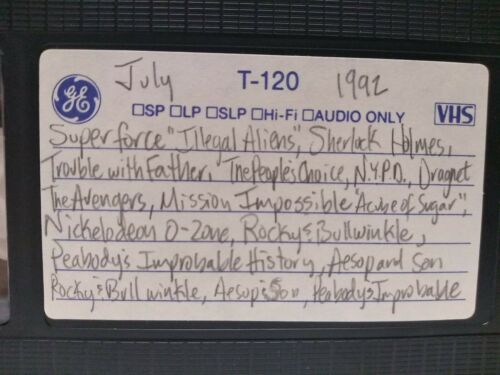 GE July T-120 1992
☐SP ☐LP ☐SLP ☐Hi-Fi ☐AUDIO ONLY VHS
Superforce "Illegal Aliens", Sherlock Holmes,
Trouble with Father, The People's Choice, N.Y.P.D., Dragnet
The Avengers, Mission Impossible "A cube of Sugar",
Nickelodeon O-Zone, Rocky & Bullwinkle,
Peabody's Improbable History, Aesop and Son
Rocky & Bullwinkle, Aesop & Son, Peabody's Improbable